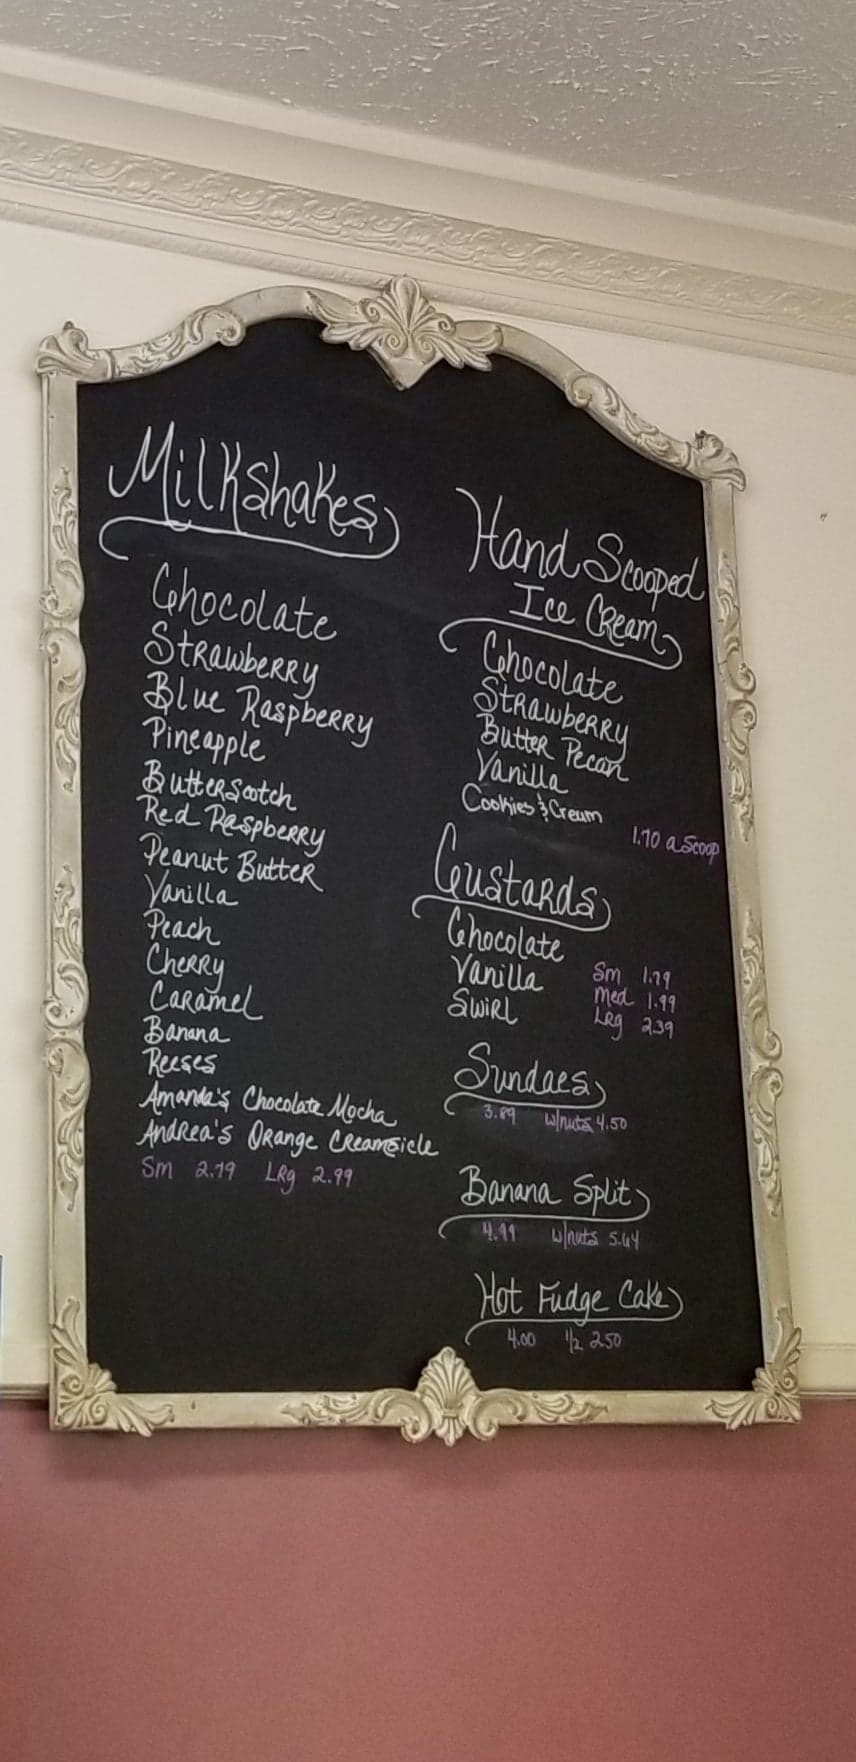 Milkshakes
Chocolate
Strawberry
Blue Raspberry
Pineapple
Butterscotch
Red Raspberry
Peanut Butter
Vanilla
Peach
Cherry
Caramel
Banana
Reeses
Amanda's Chocolate Mocha
Andrea's Orange Creamsicle
Sm 2.79 LRg 2.99
Hand Scooped
Ice Cream
Chocolate
Strawberry
Butter Pecan
Vanilla
Cookies & Cream
1.70 a Scoop
Custards
Chocolate
Vanilla Sm 1.79
Swirl med 1.99
LRg 2.39
Sundaes
3.89 w/nuts 4.50
Banana Split
4.99 w/nuts 5.64
Hot Fudge Cake
4.00 1/2 2.50